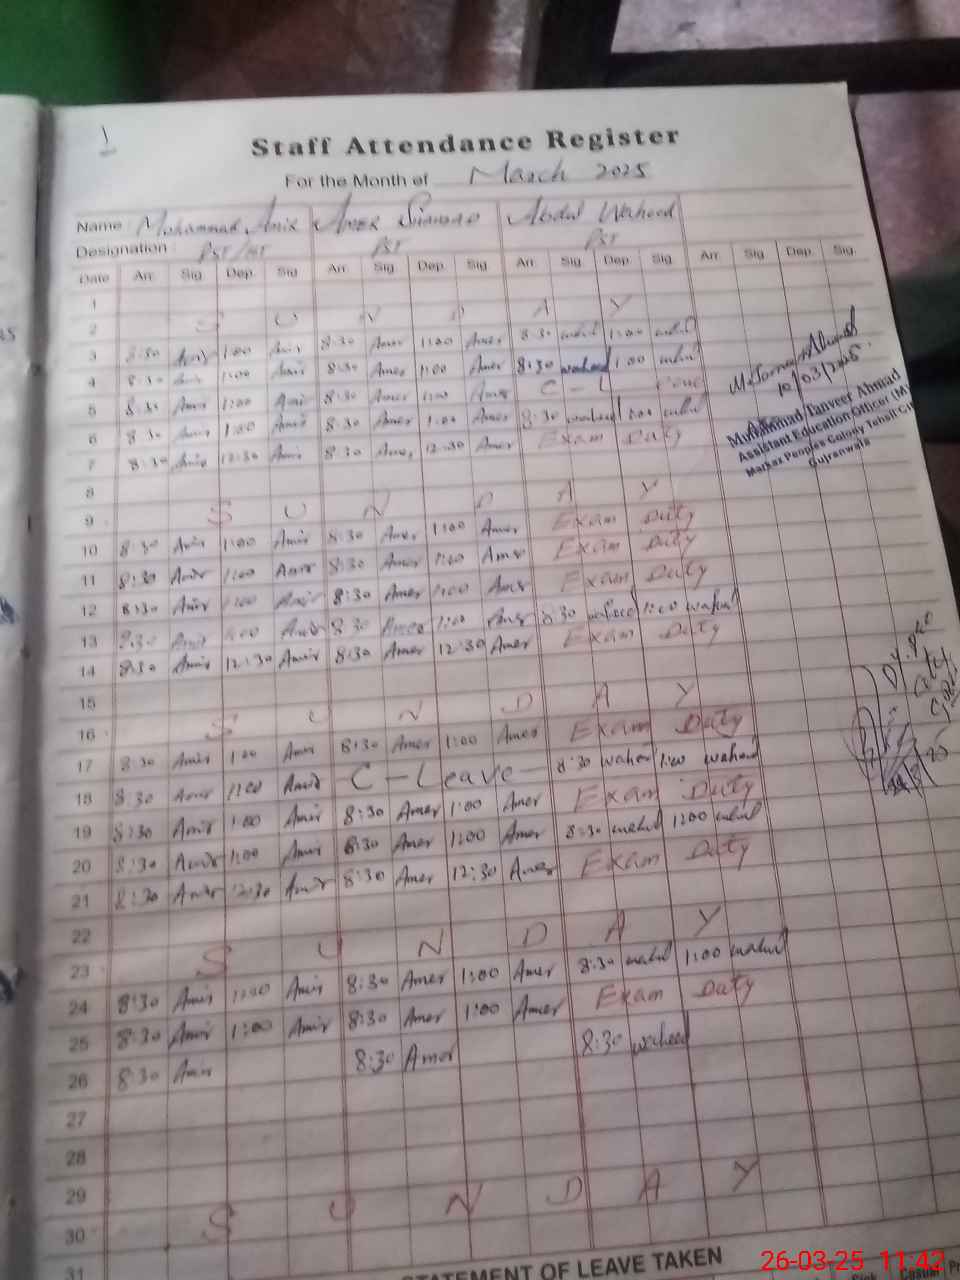 1
Staff Attendance Register
For the Month of March 2025
Name: Mohammad Amir Amer Abdul Waheed
Designation: PST PST
Date Arr. Sig Dep. Sig Arr. Sig Dep. Sig Arr. Sig. Dep. Sig. Arr. Sig. Dep. Sig.
1
2 S U N D A Y
3 8:30 Amir 1:00 Amir 8:30 Amer 1:00 Amer 8:30 wahed 1:00 wahed
4 8:30 Amir 1:00 Amir 8:30 Amer 1:00 Amer 8:30 waheed 1:00 wahed
5 8:30 Amir 1:00 Amir 8:30 Amer 1:00 Amer C - L
6 8:30 Amir 1:00 Amir 8:30 Amer 1:00 Amer 8:30 waheed 1:00 wahed
7 8:30 Amir 12:30 Amir 8:30 Amer 12:30 Amer Exam Duty
10/03/2025
Muhammad Tanveer Ahmad
Assistant Education Officer
Markaz Peoples Colony Tehsil City
Gujranwala
8
9 S U N D A Y
10 8:30 Amir 1:00 Amir 8:30 Amer 1:00 Amer Exam Duty
11 8:30 Amir 1:00 Amir 8:30 Amer 1:00 Amer Exam Duty
12 8:30 Amir 1:00 Amir 8:30 Amer 1:00 Amer Exam Duty
13 8:30 Amir 1:00 Amir 8:30 Amer 1:00 Amer 8:30 waheed 1:00 wahed
14 8:30 Amir 12:30 Amir 8:30 Amer 12:30 Amer Exam Duty
15
16 S U N D A Y
17 8:30 Amir 1:00 Amir 8:30 Amer 1:00 Amer Exam Duty
18 8:30 Amir 1:00 Amir C - Leave 8:30 waheed 1:00 waheed
19 8:30 Amir 1:00 Amir 8:30 Amer 1:00 Amer Exam Duty
20 8:30 Amir 1:00 Amir 8:30 Amer 1:00 Amer 8:30 wahed 1:00 wahed
21 8:30 Amir 12:30 Amir 8:30 Amer 12:30 Amer Exam Duty
22
23 S U N D A Y
24 8:30 Amir 1:00 Amir 8:30 Amer 1:00 Amer 8:30 wahed 1:00 wahed
25 8:30 Amir 1:00 Amir 8:30 Amer 1:00 Amer Exam Duty
26 8:30 Amir 8:30 Amer 8:30 waheed
27
28
29
30 S U N D A Y
31
STATEMENT OF LEAVE TAKEN
Sick Casual
26-03-25 11:42